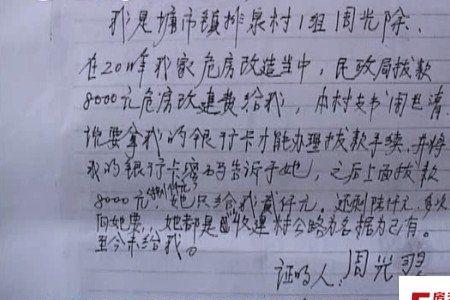 我是塘市镇排泉村1组周光除.
在2011年我家危房改造当中,民政局拨款
8000元危房改建费给我,由村支书周赵清
说要拿我的银行卡才能办理拨款手续.并将
我的银行卡密码告诉于她,之后上面拨款
8000元,她只给我贰仟元.还剩陆仟元,多次
向她要,她都是以收建村公路为名据为己有。
至今未给我。
证明人:周光
房